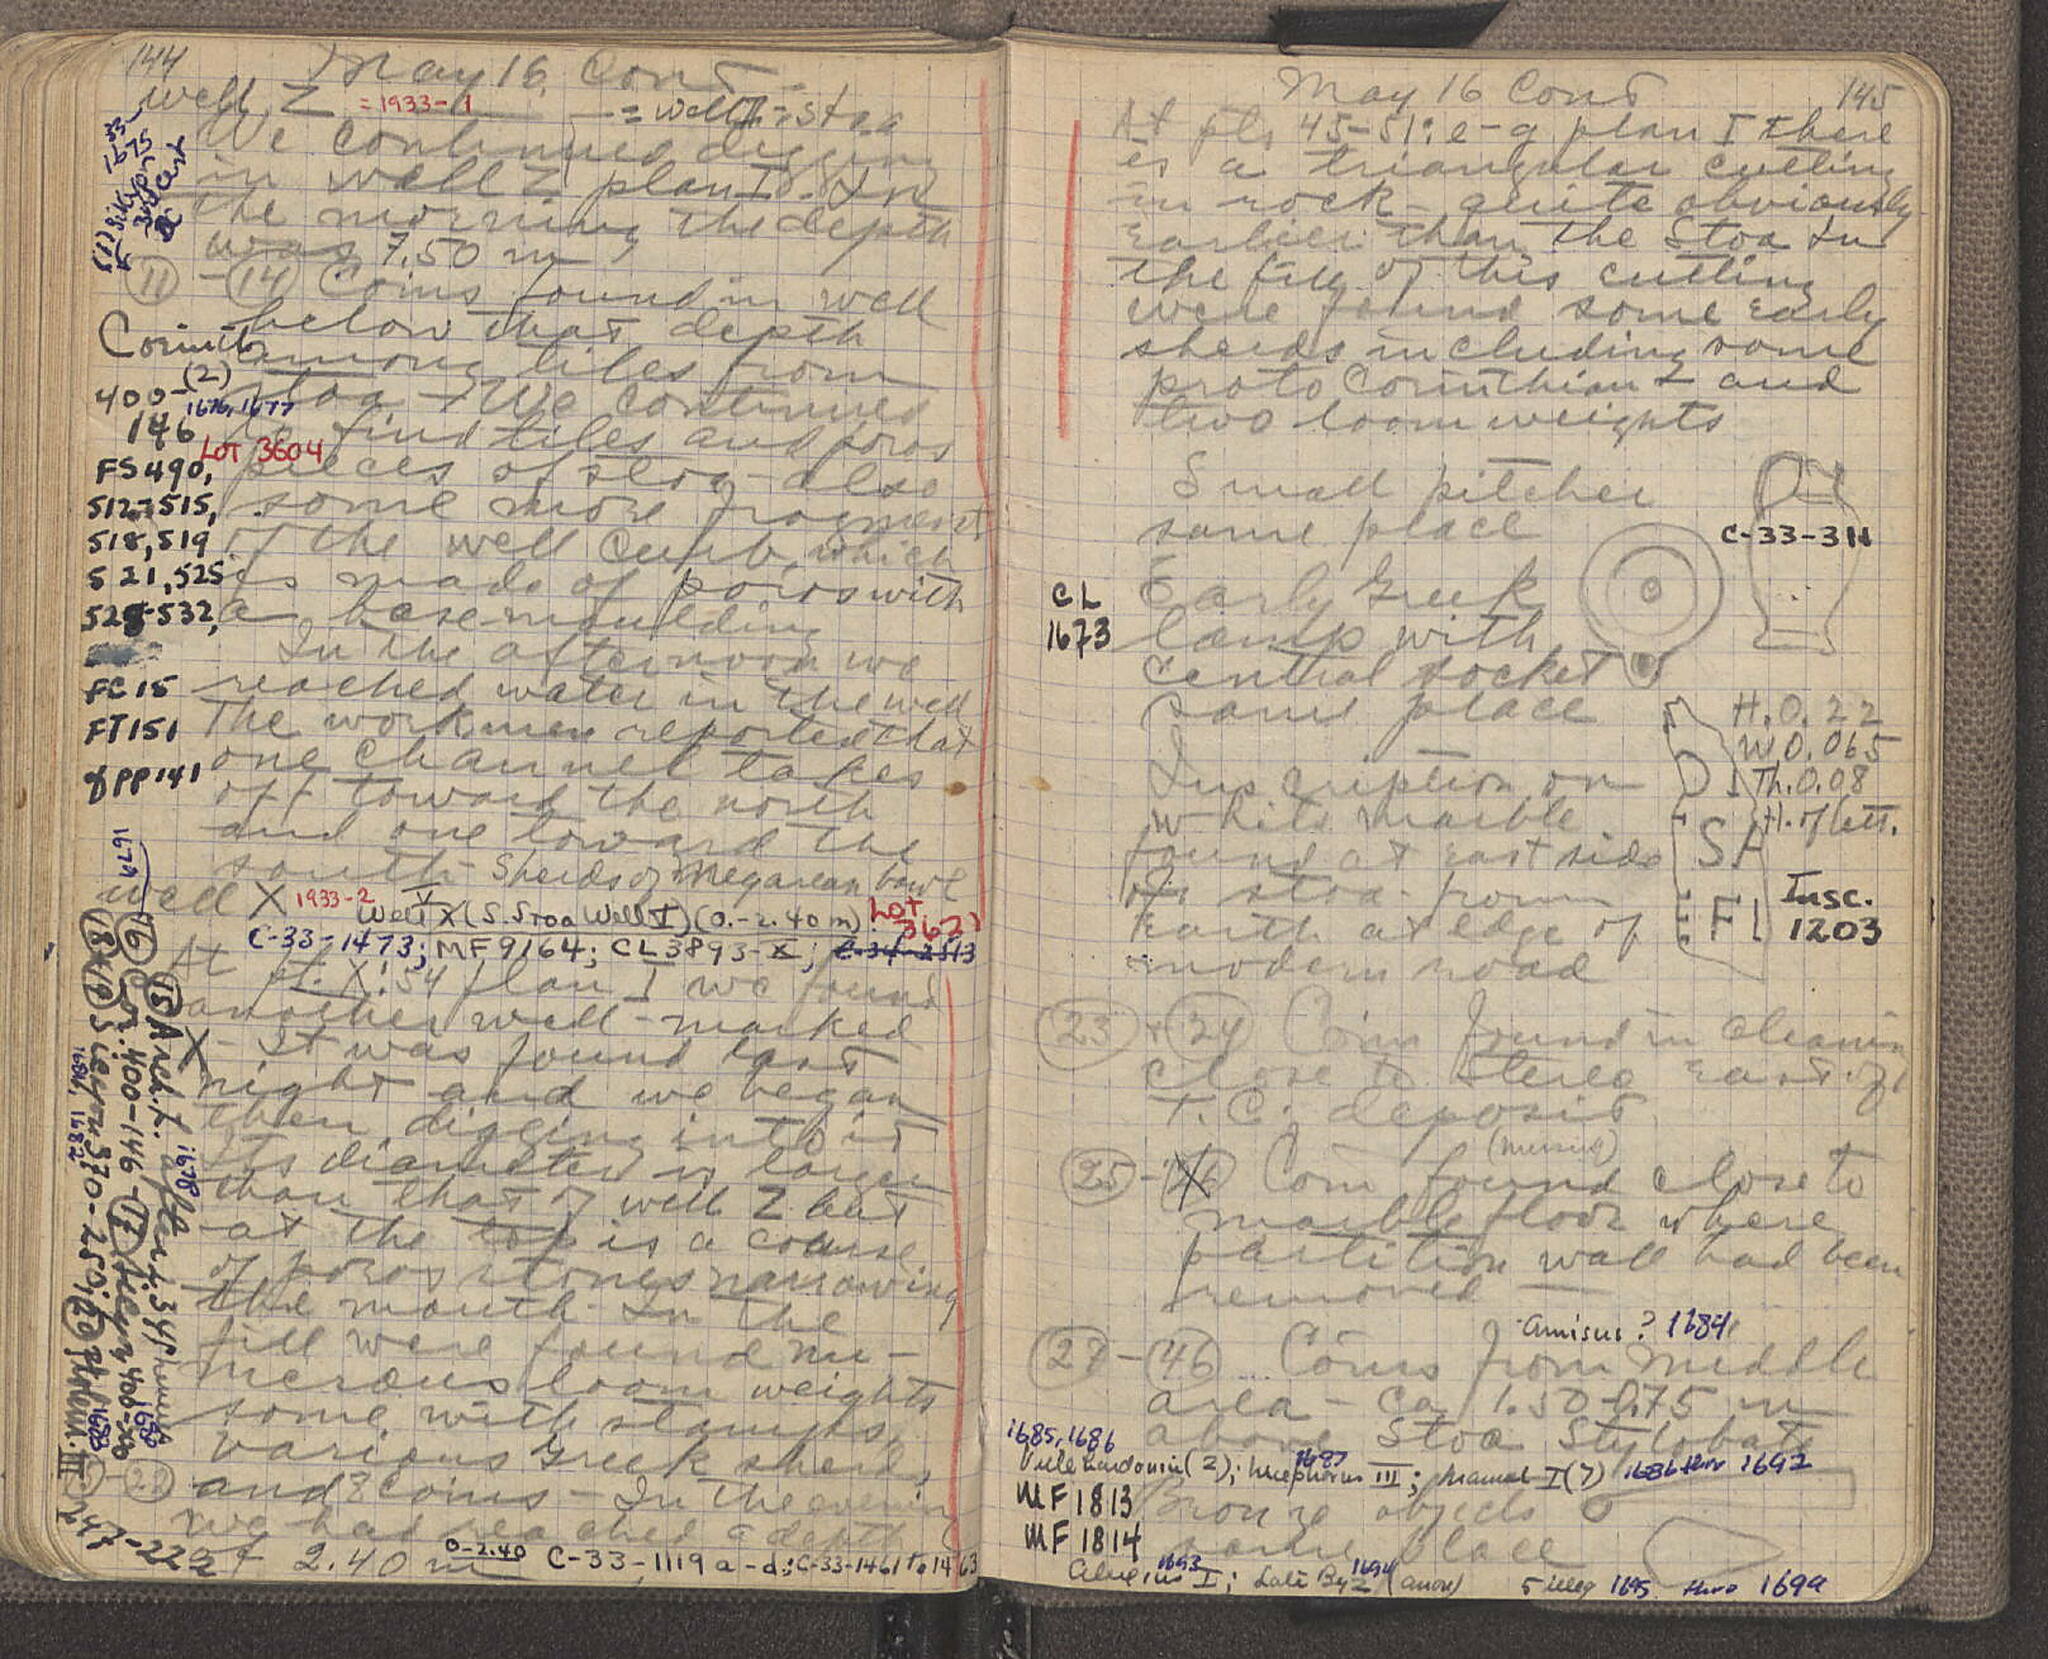 144
May 16 Cont
well Z = 1933-1 = well = Stoa
We continued digging
in well Z plan I. In
the morning the depth
was 7.50 m
11 - 14 Coins found in well
below that depth
Corinth
among tiles from
(2)
400-
146
1676, 1677
Stoa - We continued
to find tiles and poros
Lot 3604
FS 490,
pieces of stoa - also
512-515,
some more fragments
518, 519
of the well curb, which
521, 525
is made of poros with
528-532,
a base moulding
In the afternoon we
FC 15
reached water in the well
FT 151
The workmen reported that
PP 141
one channel takes
off toward the north
and one toward the
south - Sherds of Megarean bowl
well X 1933-2
Well X (S. Stoa Well V) (0.-2.40 m) Lot 3621
C-33-1473; MF 9164; CL 3893-X; C-34-2513
At pt. X:54 plan I we found
another well - marked
X - It was found last
night and we began
then digging into it
Its diameter is larger
than that of well Z but
at the top is a course
of poros stones narrowing
the mouth - In the
fill were found nu-
merous loom weights
some with stamps,
various Greek sherds,
22 and 8 coins - In the evening
we had reached a depth
of 2.40 m 0-2.40 C-33-1119 a-d; C-33-1461 to 1463
1679
16 Cor. 400-146 - 17 Sicyon 400-300
1680
1678
1681, 1682
18 & 19 Sicyon 370-250; 20 Ptolem. III 247-222
1683
145
May 16 Cont
At pls 45-51: e-g plan I there
is a triangular cutting
in rock - quite obviously
earlier than the Stoa In
the fill of this cutting
were found some early
sherds including some
proto Corinthian and
two loom weights
Small pitcher
same place
C-33-311
CL
1673
Early Greek
lamp with
central socket
same place
H. 0.22
W 0.065
Th. 0.08
H. of lett.
Inscription on
white marble
found at east side
of stoa - from
earth at edge of
modern road
SA
FI
Insc.
1203
23 + 24 Coins found in cleaning
close to Stereo East of
T.C. deposit
(missing)
25 - 26 Coin found close to
marble floor where
partition wall had been
removed
Amisus? 1684
27 - 46 Coins from middle
area - ca 1.50-0.75 m
above Stoa Stylobate
1685, 1686
Villehardouin (2); Nicephorus III; Manuel I (7) 1686 thro 1692
1687
MF 1813
Bronze objects
MF 1814
same place
1693
1694
Alexius I; Late Byz (anon) 5 illeg 1695 thro 1699